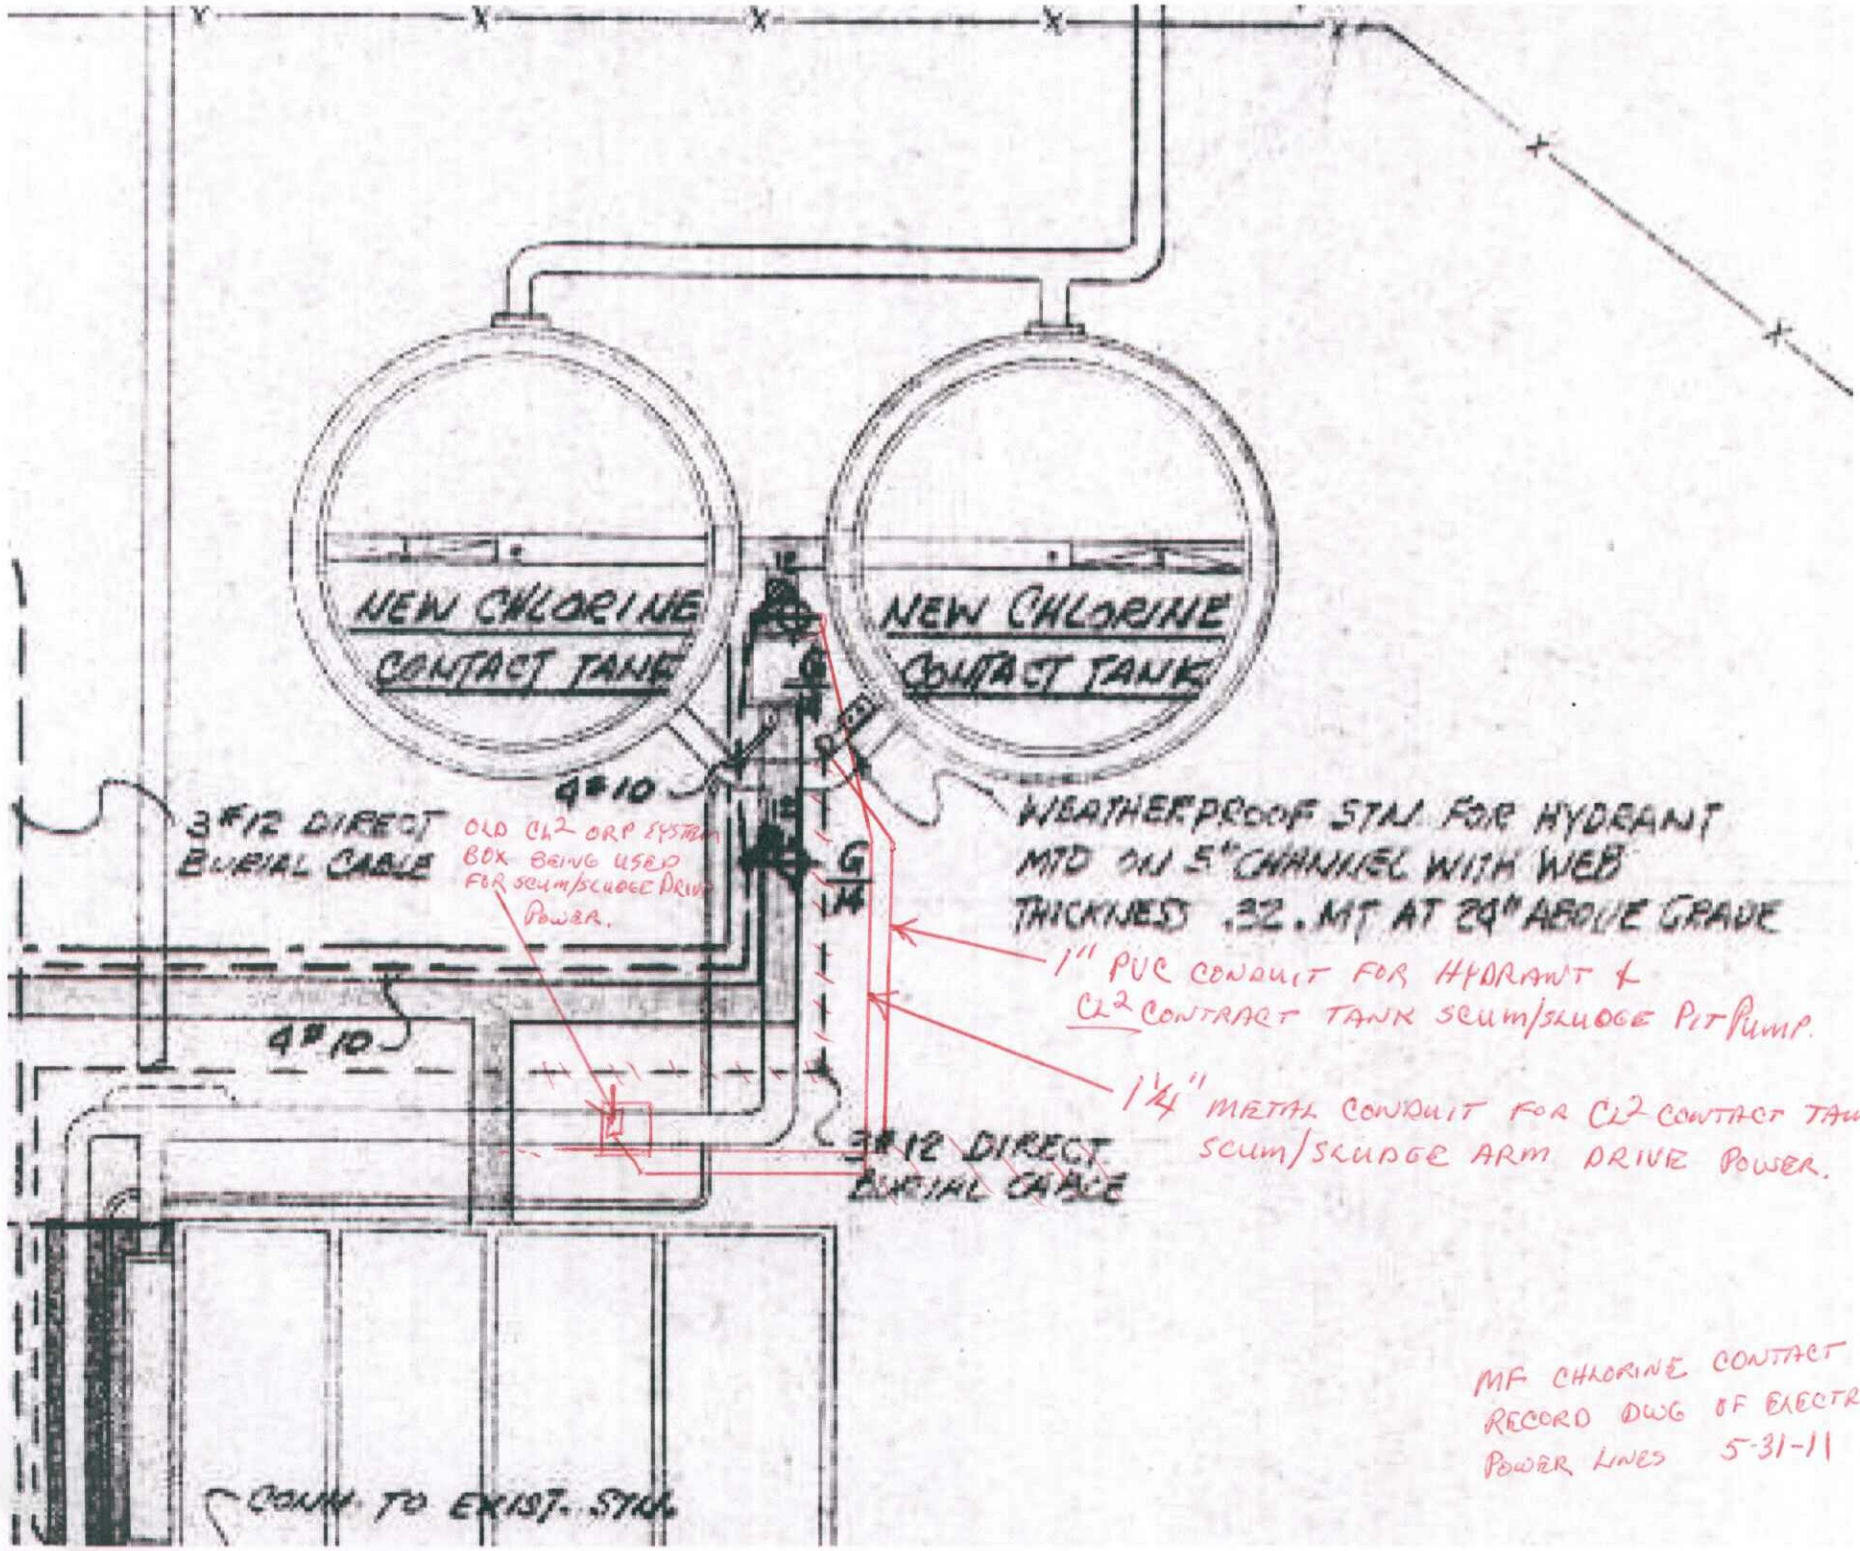 NEW CHLORINE
CONTACT TANK
NEW CHLORINE
CONTACT TANK
12
G
4#10
3#12 DIRECT
BURIAL CABLE
OLD CL2 ORP SYSTEM
BOX BEING USED
FOR SCUM/SLUDGE DRIVE
POWER.
12
G
14
WEATHERPROOF STN. FOR HYDRANT
MTD ON 5" CHANNEL WITH WEB
THICKNESS .32. MT AT 24" ABOVE GRADE
1" PVC CONDUIT FOR HYDRANT &
CL2 CONTRACT TANK SCUM/SLUDGE PIT PUMP.
4#10
1¼" METAL CONDUIT FOR CL2 CONTACT TAN
SCUM/SLUDGE ARM DRIVE POWER.
3#12 DIRECT
BURIAL CABLE
MF CHLORINE CONTACT
RECORD DWG OF ELECTR
POWER LINES 5-31-11
CONN. TO EXIST. SYN.